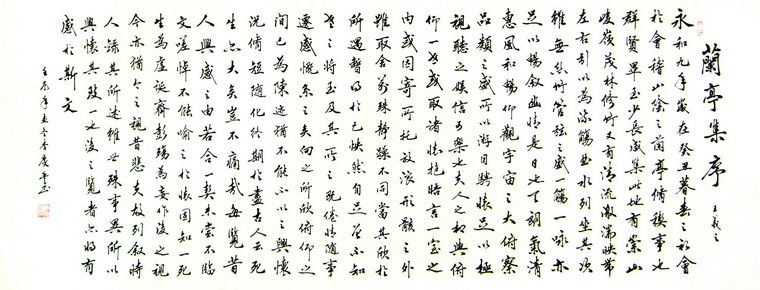 蘭亭集序
王羲之
永和九年歲在癸丑暮春之初會
於會稽山陰之蘭亭脩稧事也
群賢畢至少長咸集此地有崇山
峻嶺茂林修竹又有清流激湍映帶
左右引以為流觴曲水列坐其次
雖無絲竹管弦之盛觴一詠亦
足以暢敘幽情是日也天朗氣清
惠風和暢仰觀宇宙之大俯察
品類之盛所以游目騁懷足以極
視聽之娛信可樂也夫人之相與俯
仰一世或取諸懷抱晤言一室之
內或因寄所托放浪形骸之外
雖取舍萬殊靜躁不同當其欣於
所遇暫得於己怏然自足不知
老之將至及其所之既倦情隨事
遷感慨系之矣向之所欣俯仰之
間已為陳迹猶不能不以之興懷
況脩短隨化終期於盡古人云死
生亦大矣豈不痛哉每覽昔
人興感之由若合一契未嘗不臨
文嗟悼不能喻之於懷固知一死
生為虛誕齊彭殤為妄作後之視
今亦猶今之視昔悲夫故列敘時
人錄其所述雖世殊事異所以
興懷其致一也後之覽者亦將有
感於斯文